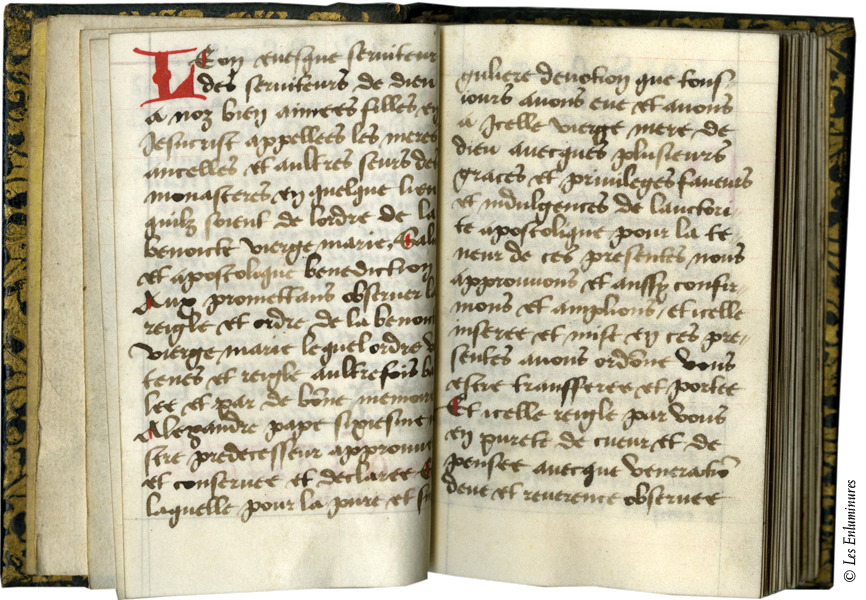 Leon evesque serviteur
des serviteurs de dieu
a noz bien aimees filles en
Jesucrist appellees les meres
ancelles et aultres seurs des
monasteres en quelque lieu
quilz soient de lordre de la
benoicte vierge marie, Salu
et apostolique benediction
Aux promettans observer la
reigle et ordre de la benoi
vierge marie lequel ordre
tenes et reigle aultrefois
lee et par de bone memoire
Alexandre pape sixiesme
stre predecesseur approuvee
et conservee et declaree Et
laquelle pour la pure et si
guliere devotion que tous-
iours avons eue et avons
a Jcelle vierge mere de
dieu avecques plusieurs
graces et privileges faveurs
et indulgences de lauctori-
te apostolique pour la te-
neur de ces presentes nous
approuvons et aussy confir-
mons et amplions, et icelle
inseree et mist en ces pre-
sentes avons ordone vous
estre transferee et portee
Et icelle reigle par vous
en purete de cueur et de
pensee avecque veneratio
deue et reverence observee
© Les Enluminures